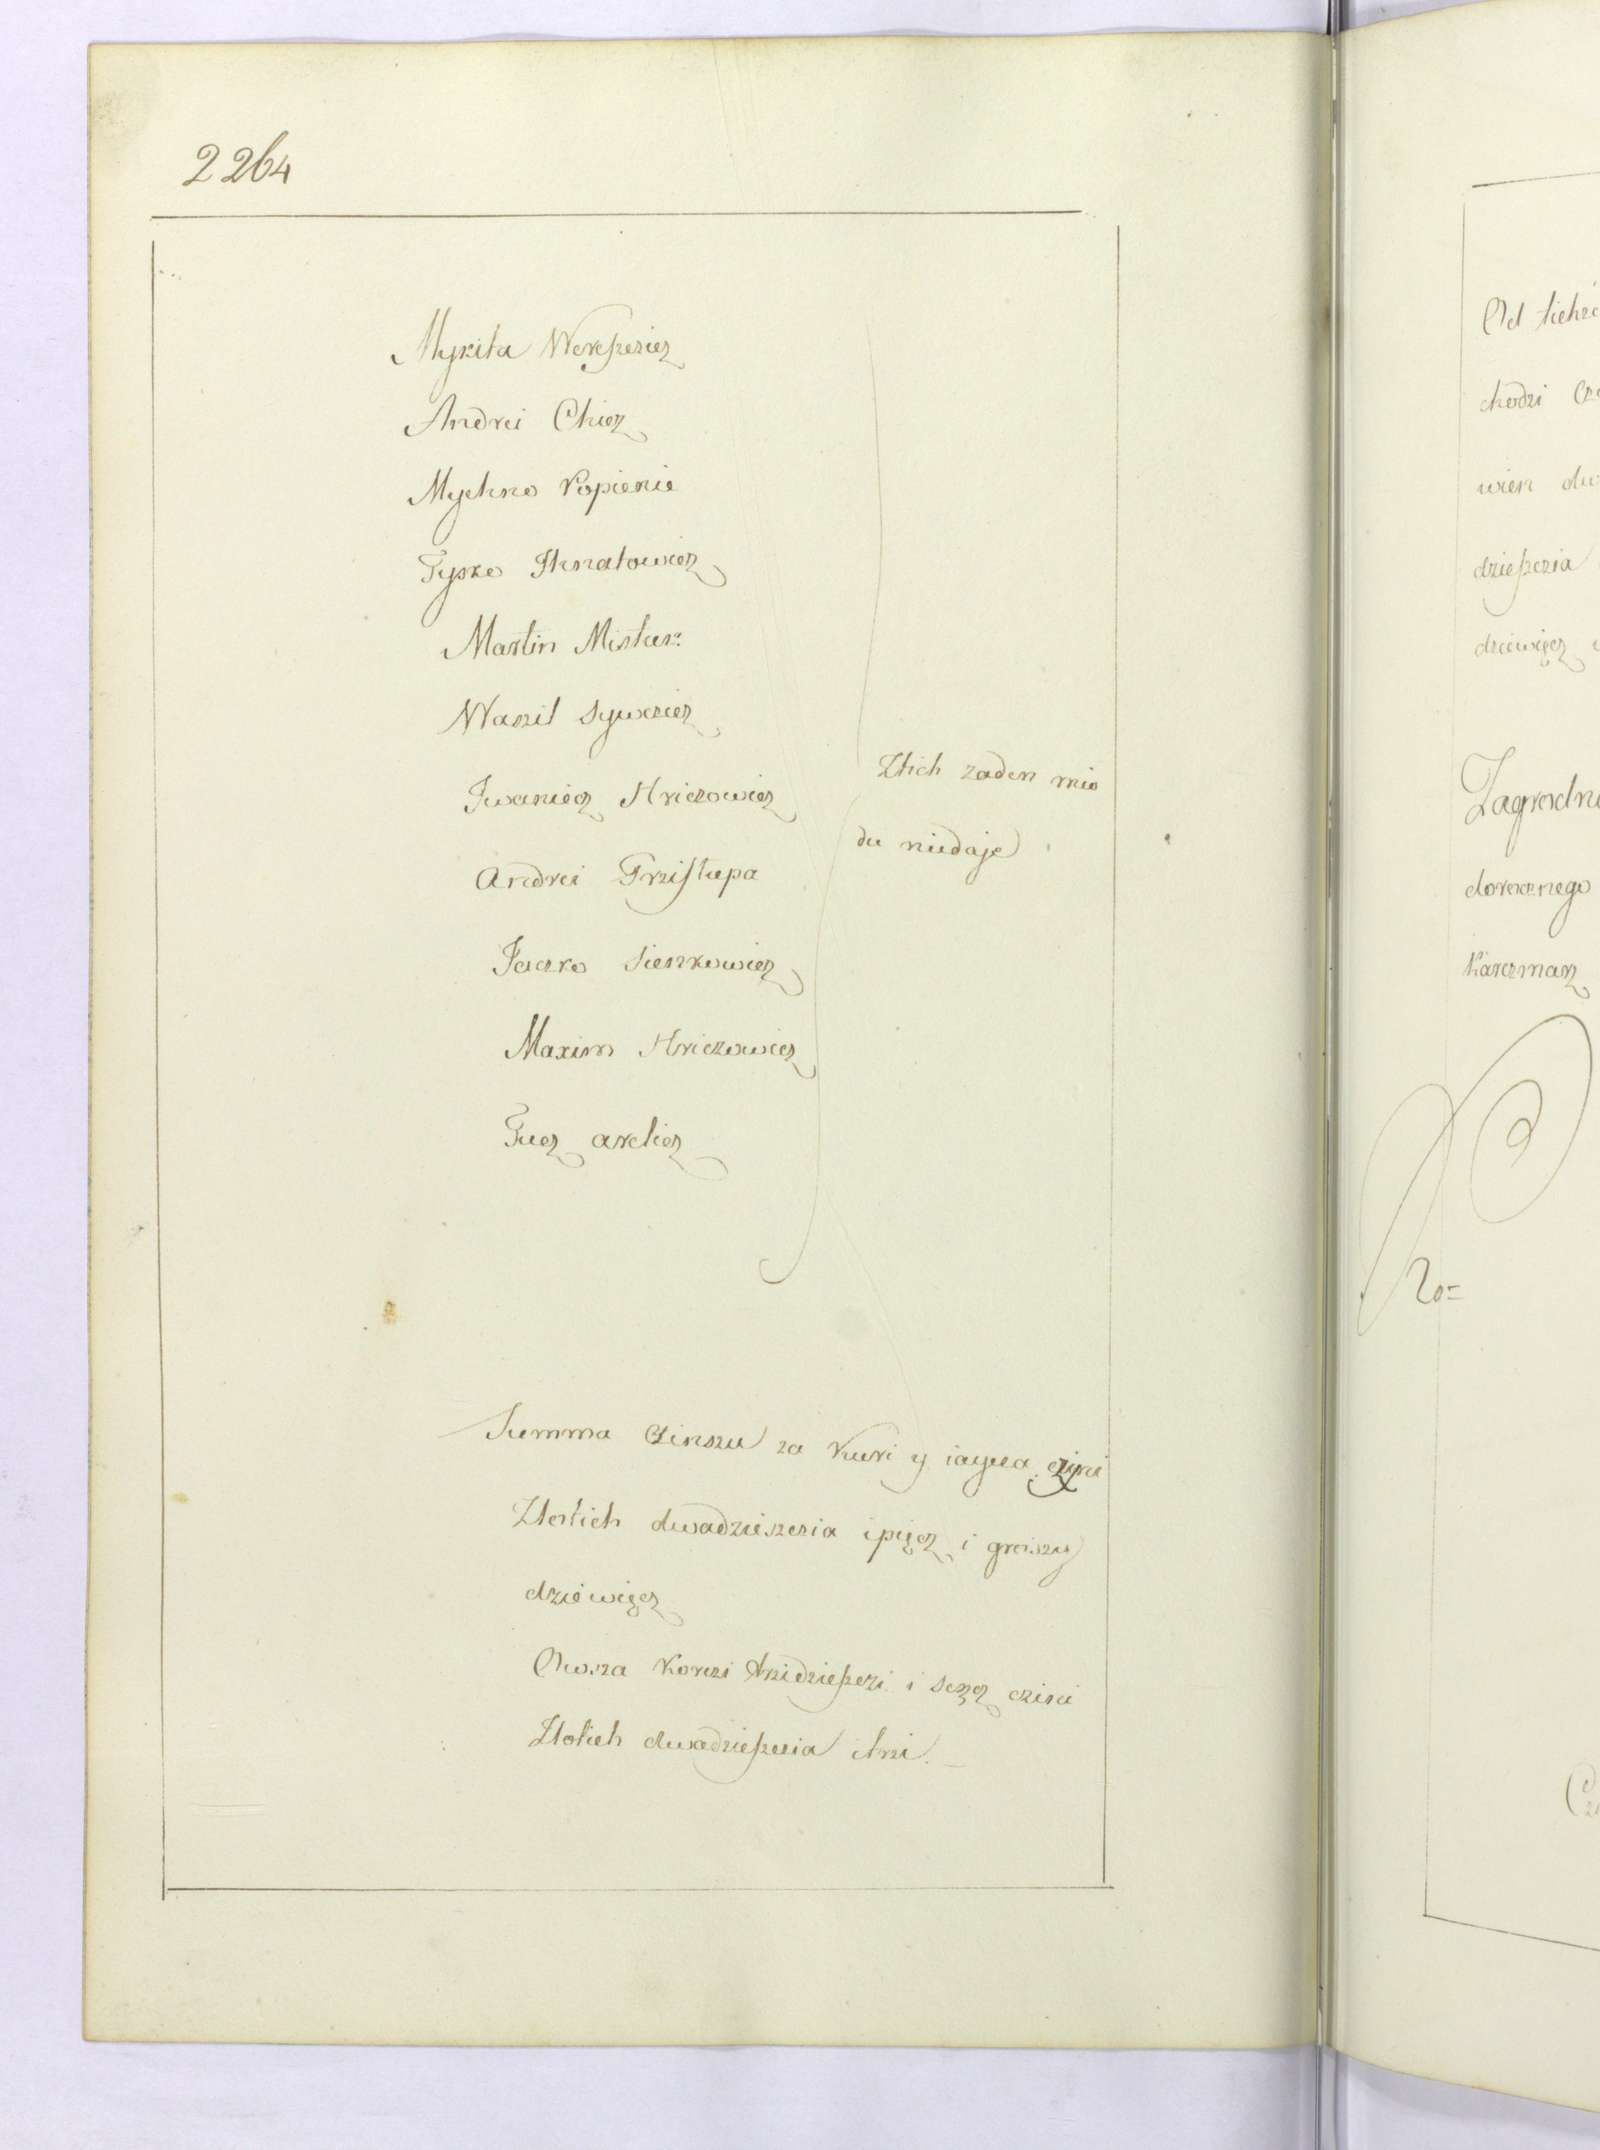 2264
Mykita Wereszczicz
Andrei Chicz
Mychno Kopienie
Tysko Ihnatowicz
Martin Mistur:
Waszil Sywczicz
Iwaniecz Hriczowicz
Andrei Przistupa
Jaczko Sienkowicz
Maxim Hriczowicz
arclicz
Ztich zaden mio
du niedaje
Summa Czinszu za Kuri y iayca czini
Zlotich dwadzieszczia ipięcz i groszy
dziewięcz
Owsza Korczi trzidzieszczi i sescz czini
Zlotich dwadzieszczia itrzi. –
Od
chodzi
wien
dzieszczia
dziewięcz
dorocznego
Karczmarz